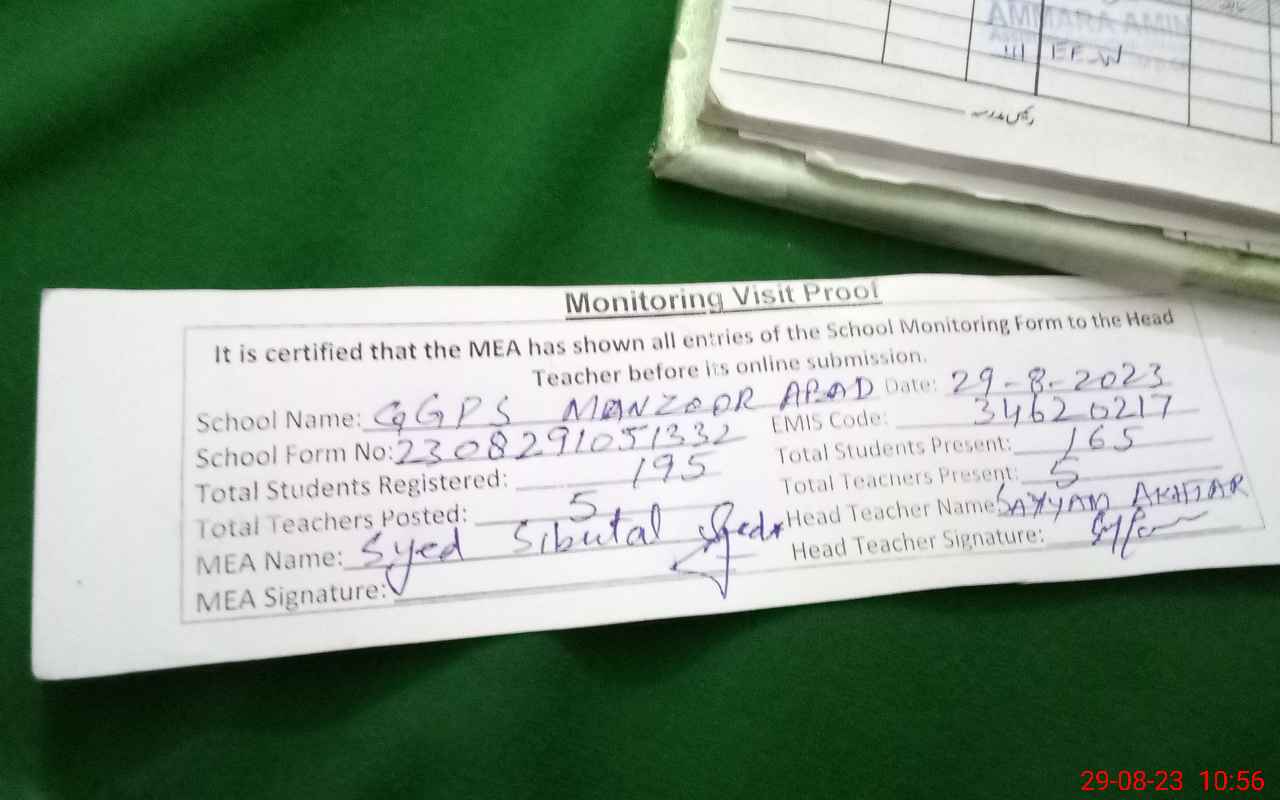 AMMARA AMIN
III EE-W
رئیس مدرسہ
Monitoring Visit Proof
It is certified that the MEA has shown all entries of the School Monitoring Form to the Head
Teacher before its online submission.
School Name: GGPS MANZOOR ABAD Date: 29-8-2023
School Form No: 2308291051332 EMIS Code: 34620217
Total Students Registered: 195 Total Students Present: 165
Total Teachers Posted: 5 Total Teachers Present: 5
MEA Name: Syed Sibutal Head Teacher Name: SAYYAN AKHTAR
MEA Signature: Head Teacher Signature:
29-08-23 10:56